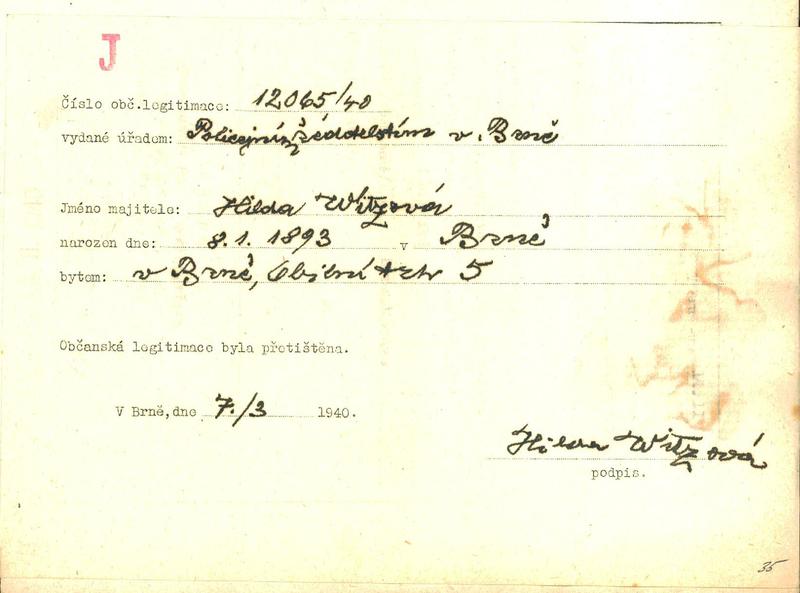 J
Číslo obč.legitimace: 12065/40
vydané úřadem: v. Brně
Jméno majitele: Hilda Witzová
narozen dne: 8.1. 1893 v Brně
bytem: v Brně, 5
Občanská legitimace byla přetištěna.
V Brně,dne 7./3 1940.
Hilda Witzová
podpis.
35